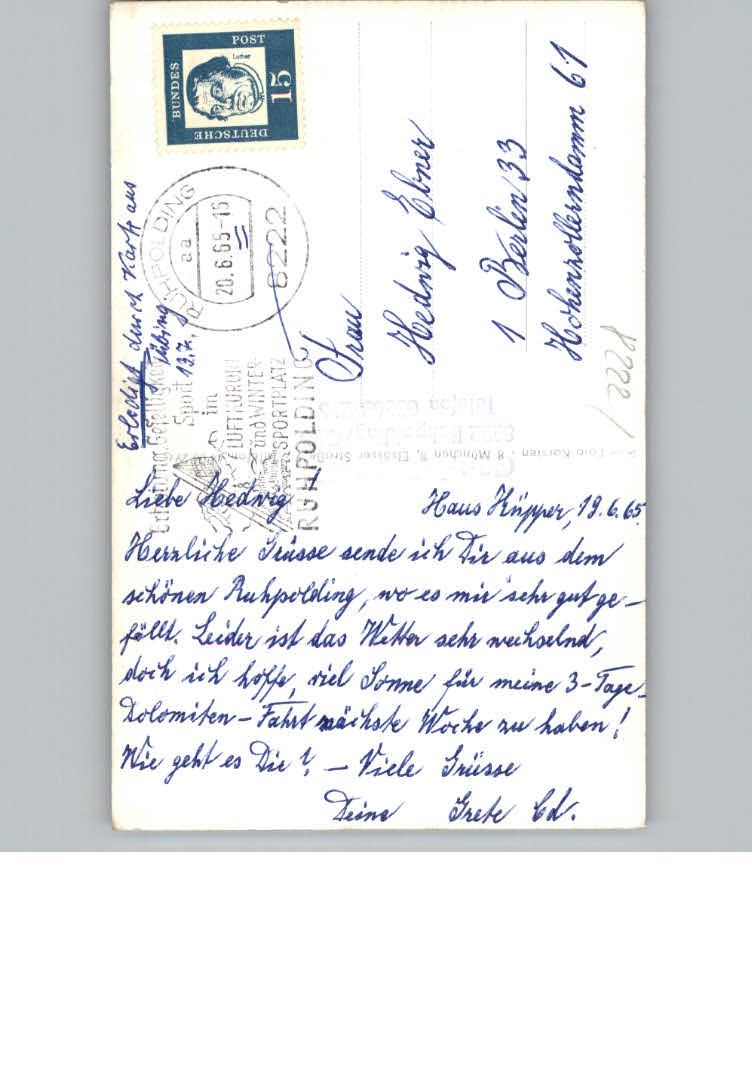 DEUTSCHE
BUNDES
POST
15
Luther
RUHPOLDING
aa
20.6.65-16
8222
Erholung, Geselligkeit
Sport
im
LUFTKURORT
und WINTER-
SPORTPLATZ
RUHPOLDING
Erledigt durch Karte aus
13.7.
Frau
Hedwig Ebner
1 Berlin 33
Hohenzollerndamm 61
8222
8222 Ruhpolding
Telefon
Foto Korsten · 8 München 9, Elsässer Straße
Liebe Hedwig!
Haus Küpper, 19.6.65.
Herzliche Grüsse sende ich Dir aus dem
schönen Ruhpolding, wo es mir sehr gut ge-
fällt. Leider ist das Wetter sehr wechselnd,
doch ich hoffe, viel Sonne für meine 3-Tage-
Dolomiten-Fahrt nächste Woche zu haben!
Wie geht es Dir? – Viele Grüsse
Deine Grete Ed.